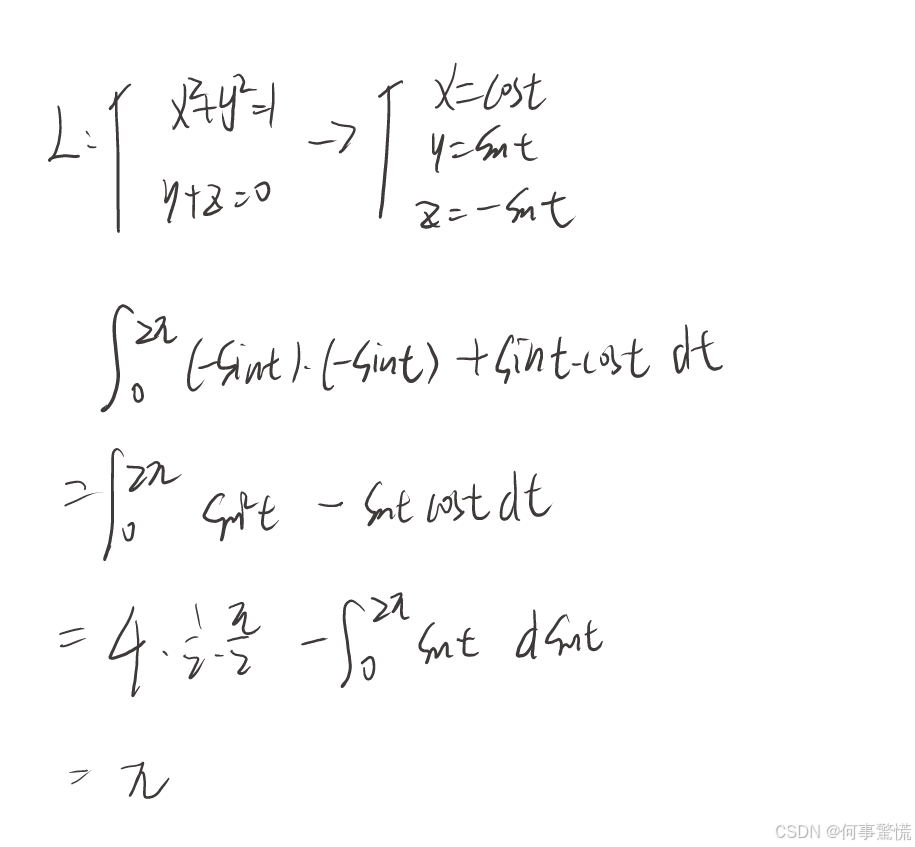 L: { x²+y²=1 → { x=cost
y+z=0 y=sint
z=-sint
∫₀^{2π} (-sint)·(-sint) + sint·cost dt
= ∫₀^{2π} sin²t - sint cost dt
= 4·1/2·π/2 - ∫₀^{2π} sint dsint
= π
CSDN @何事驚慌